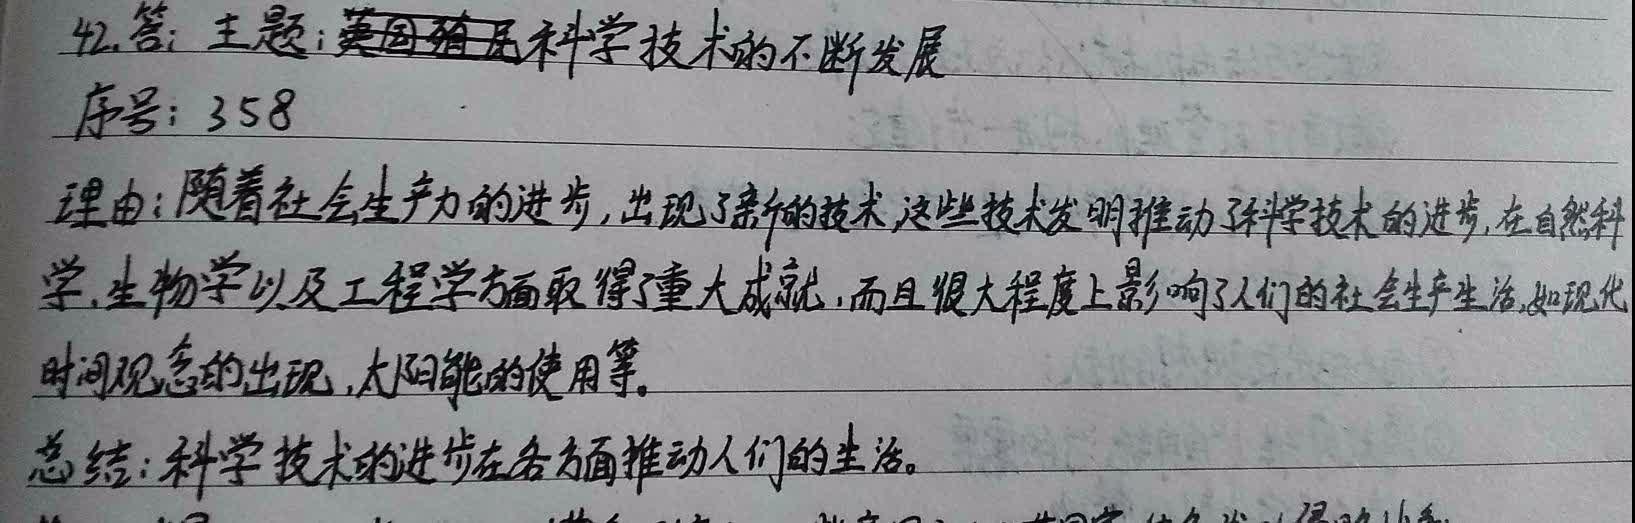 42.答:主题:英国殖民科学技术的不断发展
序号:358
理由:随着社会生产力的进步,出现了新的技术,这些技术发明推动了科学技术的进步,在自然科
学,生物学以及工程学方面取得了重大成就,而且很大程度上影响了人们的社会生产生活,如现代
时间观念的出现,太阳能的使用等。
总结:科学技术的进步在各方面推动人们的生活。